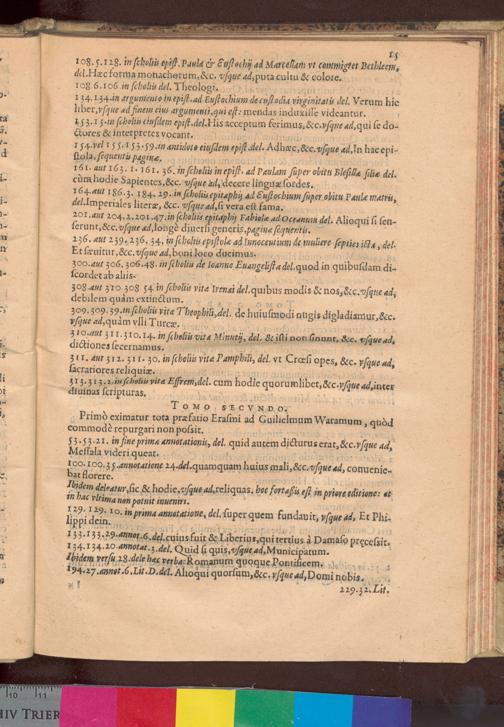 15
108. 5. 128. in scholiis epist. Paulæ & Eustochij ad Marcellam vt commigret Bethleem,
del. Hæc forma monachorum, &c. vsque ad, puta cultu & colore.
108. 6. 106. in scholiis del. Theologi.
114. 134. in argumento in epist. ad Eustochium de custodia virginitatis del. Verum hic
liber, vsque ad finem eius argumenti, qui est: mendas induxisse videantur.
153. 15. in scholiis eiusdem epist. del. His acceptum ferimus, &c. vsque ad, qui se do-
ctores & interpretes vocant.
154. vel 155. 153. 59. in antidoto eiusdem epist. del. Adhæc, &c. vsque ad, In hac epi-
stola, sequentis paginæ,
161. aut 163. 1. 161. 36. in scholiis in epist. ad Paulam super obitu Blesillæ filiæ del.
cùm hodie Sapientes, &c. vsque ad, decere linguæ sordes.
164. aut 186. 3. 184. 29. in scholiis epitaphij ad Eustochium super obitu Paulæ matris,
del. Imperiales literæ, &c. vsque ad, si vera est fama.
201. aut 204. 2. 201. 47. in scholiis epitaphij Fabiolæ ad Oceanum del. Alioqui si sen-
serunt, &c. vsque ad, longè diuersi generis, pagina sequentis.
236. aut 239. 236. 34. in scholiis epistolæ ad Innocentium de muliere septies icta, del.
Et sæuitur, &c. vsque ad, boni loco ducimus.
300. aut 306. 306. 48. in scholiis de Ioanne Euangelista del. quod in quibusdam di-
scordet ab aliis.
308 aut 310 308 54. in scholiis vitæ Irenæi del. quibus modis & nos, &c. vsque ad,
debilem quàm extinctum.
309. 309. 39. in scholiis vitæ Theophili, del. de huiusmodi nugis digladiamur, &c.
vsque ad, quàm vlli Turcæ.
310. aut 311. 310. 14. in scholiis vitæ Minutij, del. & isti non sinunt, &c. vsque ad,
dictiones secernamus.
311. aut 312. 311. 30. in scholiis vitæ Pamphili, del. vt Crœsi opes, &c. vsque ad,
sacratiores reliquiæ.
313. 313. 2. in scholiis vitæ Effrem, del. cum hodie quorumlibet, &c. vsque ad, inter
diuinas scripturas.
TOMO SECVNDO.
Primò eximatur tota præfatio Erasmi ad Guilielmum Waramum, quòd
commodè repurgari non possit.
53. 53. 21. in fine prima annotationis, del. quid autem dicturus erat, &c. vsque ad,
Messala videri queat.
100. 100. 35. annotatione 24. del. quamquam huius mali, &c. vsque ad, conuenie-
bat florere.
Ibidem deleatur, sic & hodie, vsque ad, reliquas. hoc fortassis est in priore editione: at
in hac vltima non potuit inueniri.
129. 129. 10. in prima annotatione, del. super quem fundauit, vsque ad, Et Phi-
lippi dein.
133. 133. 29. annot. 6. del. cuius fuit & Liberius, qui tertius à Damaso præcessit.
134. 134. 20. annotat. 3. del. Quid si quis, vsque ad, Municipatum.
Ibidem versu 28. dele hæc verba: Romanum quoque Pontificem.
194. 27. annot. 6. Lit. D. del. Alioqui quorsum, &c. vsque ad, Domi nobis.
229. 32. Lit.
10 11
HIV TRIER